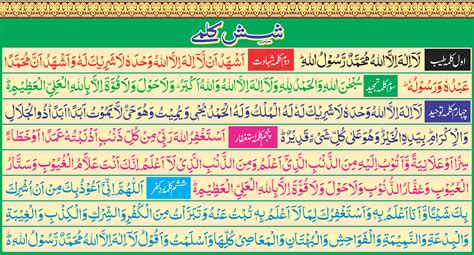 شش کلمے
اول کلمہ طیب لَآ اِلٰهَ اِلَّا اللهُ مُحَمَّدٌ رَّسُوْلُ اللهِ دوم کلمہ شہادت اَشْهَدُ اَنْ لَّآ اِلٰهَ اِلَّا اللهُ وَحْدَهٗ لَا شَرِيْكَ لَهٗ وَاَشْهَدُ اَنَّ مُحَمَّدًا
عَبْدُهٗ وَرَسُوْلُهٗ سوم کلمہ تمجید سُبْحٰنَ اللهِ وَالْحَمْدُ لِلّٰهِ وَلَآ اِلٰهَ اِلَّا اللهُ وَاللهُ اَكْبَرُ وَلَا حَوْلَ وَلَا قُوَّةَ اِلَّا بِاللهِ الْعَلِيِّ الْعَظِيْمِ
چہارم کلمہ توحید لَآ اِلٰهَ اِلَّا اللهُ وَحْدَهٗ لَا شَرِيْكَ لَهٗ لَهُ الْمُلْكُ وَلَهُ الْحَمْدُ يُحْيٖ وَيُمِيْتُ وَهُوَ حَيٌّ لَّا يَمُوْتُ اَبَدًا اَبَدًا ذُو الْجَلَالِ
وَالْاِكْرَامِ بِيَدِهِ الْخَيْرُ وَهُوَ عَلٰى كُلِّ شَيْءٍ قَدِيْرٌ پنجم کلمہ استغفار اَسْتَغْفِرُ اللهَ رَبِّيْ مِنْ كُلِّ ذَنْبٍ اَذْنَبْتُهٗ عَمَدًا اَوْ خَطَأً
سِرًّا اَوْ عَلَانِيَةً وَّاَتُوْبُ اِلَيْهِ مِنَ الذَّنْبِ الَّذِيْٓ اَعْلَمُ وَمِنَ الذَّنْبِ الَّذِيْ لَآ اَعْلَمُ اِنَّكَ اَنْتَ عَلَّامُ الْغُيُوْبِ وَسَتَّارُ
الْعُيُوْبِ وَغَفَّارُ الذُّنُوْبِ وَلَا حَوْلَ وَلَا قُوَّةَ اِلَّا بِاللهِ الْعَلِيِّ الْعَظِيْمِ ششم کلمہ ردکفر اَللّٰهُمَّ اِنِّيْٓ اَعُوْذُ بِكَ مِنْ اَنْ اُشْرِكَ
بِكَ شَيْئًا وَّاَنَا اَعْلَمُ بِهٖ وَاَسْتَغْفِرُكَ لِمَا لَآ اَعْلَمُ بِهٖ تُبْتُ عَنْهُ وَتَبَرَّأْتُ مِنَ الْكُفْرِ وَالشِّرْكِ وَالْكِذْبِ وَالْغِيْبَةِ
وَالْبِدْعَةِ وَالنَّمِيْمَةِ وَالْفَوَاحِشِ وَالْبُهْتَانِ وَالْمَعَاصِيْ كُلِّهَا وَاَسْلَمْتُ وَاَقُوْلُ لَآ اِلٰهَ اِلَّا اللهُ مُحَمَّدٌ رَّسُوْلُ اللهِ